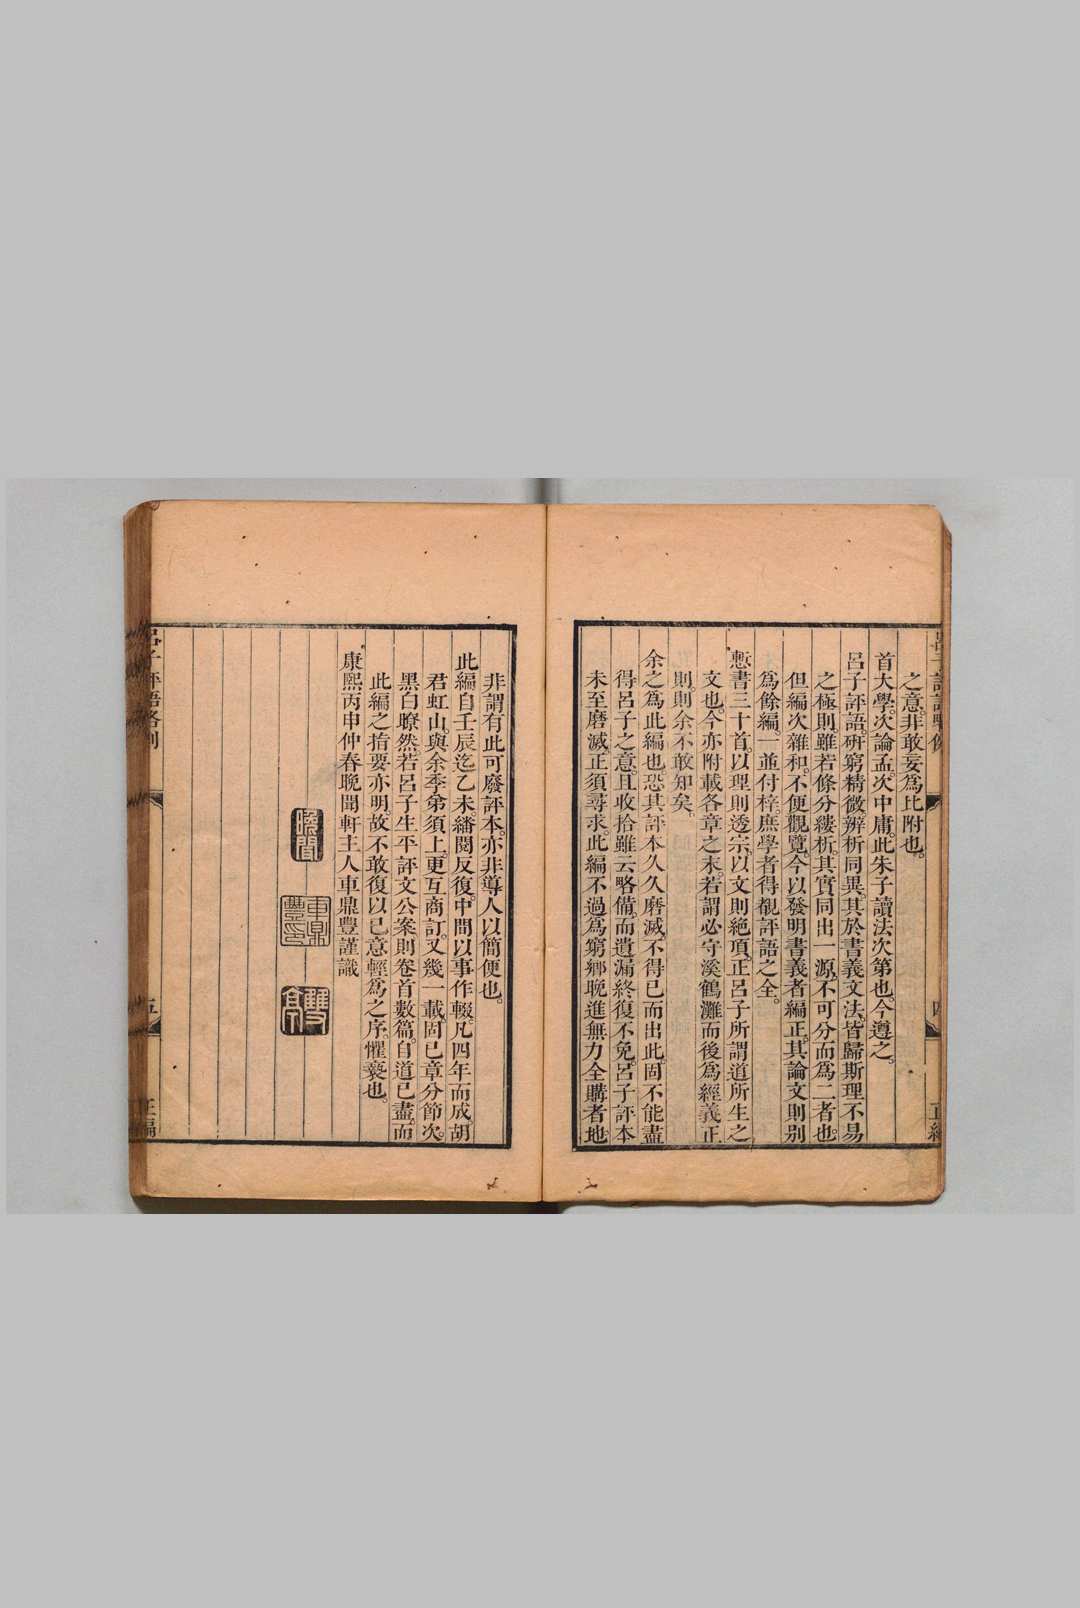 之意。非敢妄為比附也。
首大學。次論孟。次中庸。此朱子讀法次第也。今遵之。
呂子評語。研窮精微辨析同異。其於書義文法。皆歸斯理不易
之極則。雖若條分縷析。其實同出一源。不可分而為二者也。
但編次雜和。不便觀覽。今以發明書義者編正。其論文則别
為餘編。一並付梓。庶學者得覩評語之全。
慙書三十首。以理則透宗。以文則絶項。正呂子所謂道所生之
文也。今亦附載各章之末。若謂必守溪鶴灘而後為經義正
則。則余不敢知矣。
余之為此編也。恐其評本久久磨滅。不得已而出此。固不能盡
得呂子之意。且收拾雖云略備。而遺漏終復不免。呂子評本
未至磨滅。正須尋求。此編不過為窮鄉晚進無力全購者地。
呂子評語略例
四
正編
非謂有此可廢評本。亦非導人以簡便也。
此編自壬辰迄乙未繙閱反復。中間以事作輟。凡四年而成。胡
君虹山與余季弟須上。更互商訂。又幾一載。固已章分節次。
黑白瞭然。若呂子生平評文公案。則卷首數篇。自道已盡。而
此編之指要亦明。故不敢復以已意輕為之序。懼褻也。
康熙丙申仲春晚聞軒主人車鼎豐謹識
晚聞
車鼎豐印
雙亭
呂子評語略例
五
正編